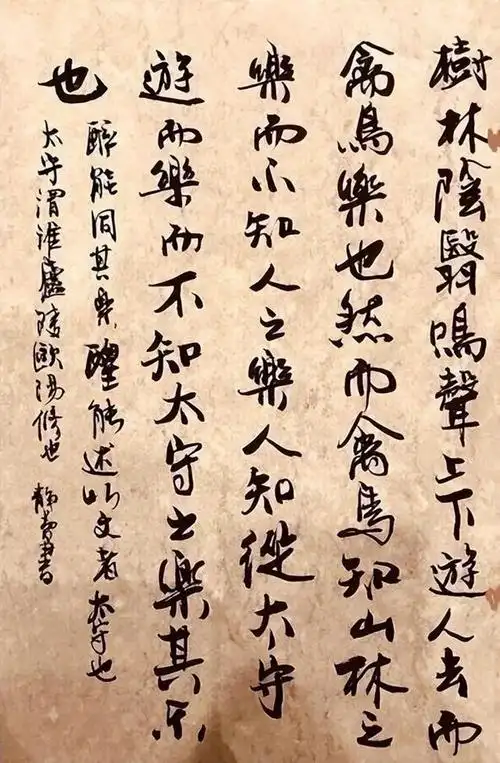 樹林陰翳鳴聲上下遊人去而
禽鳥樂也然而禽鳥知山林之
樂而不知人之樂人知從太守
遊而樂而不知太守之樂其乐
也
醉能同其樂醒能述以文者太守也
太守謂誰廬陵歐陽修也 書